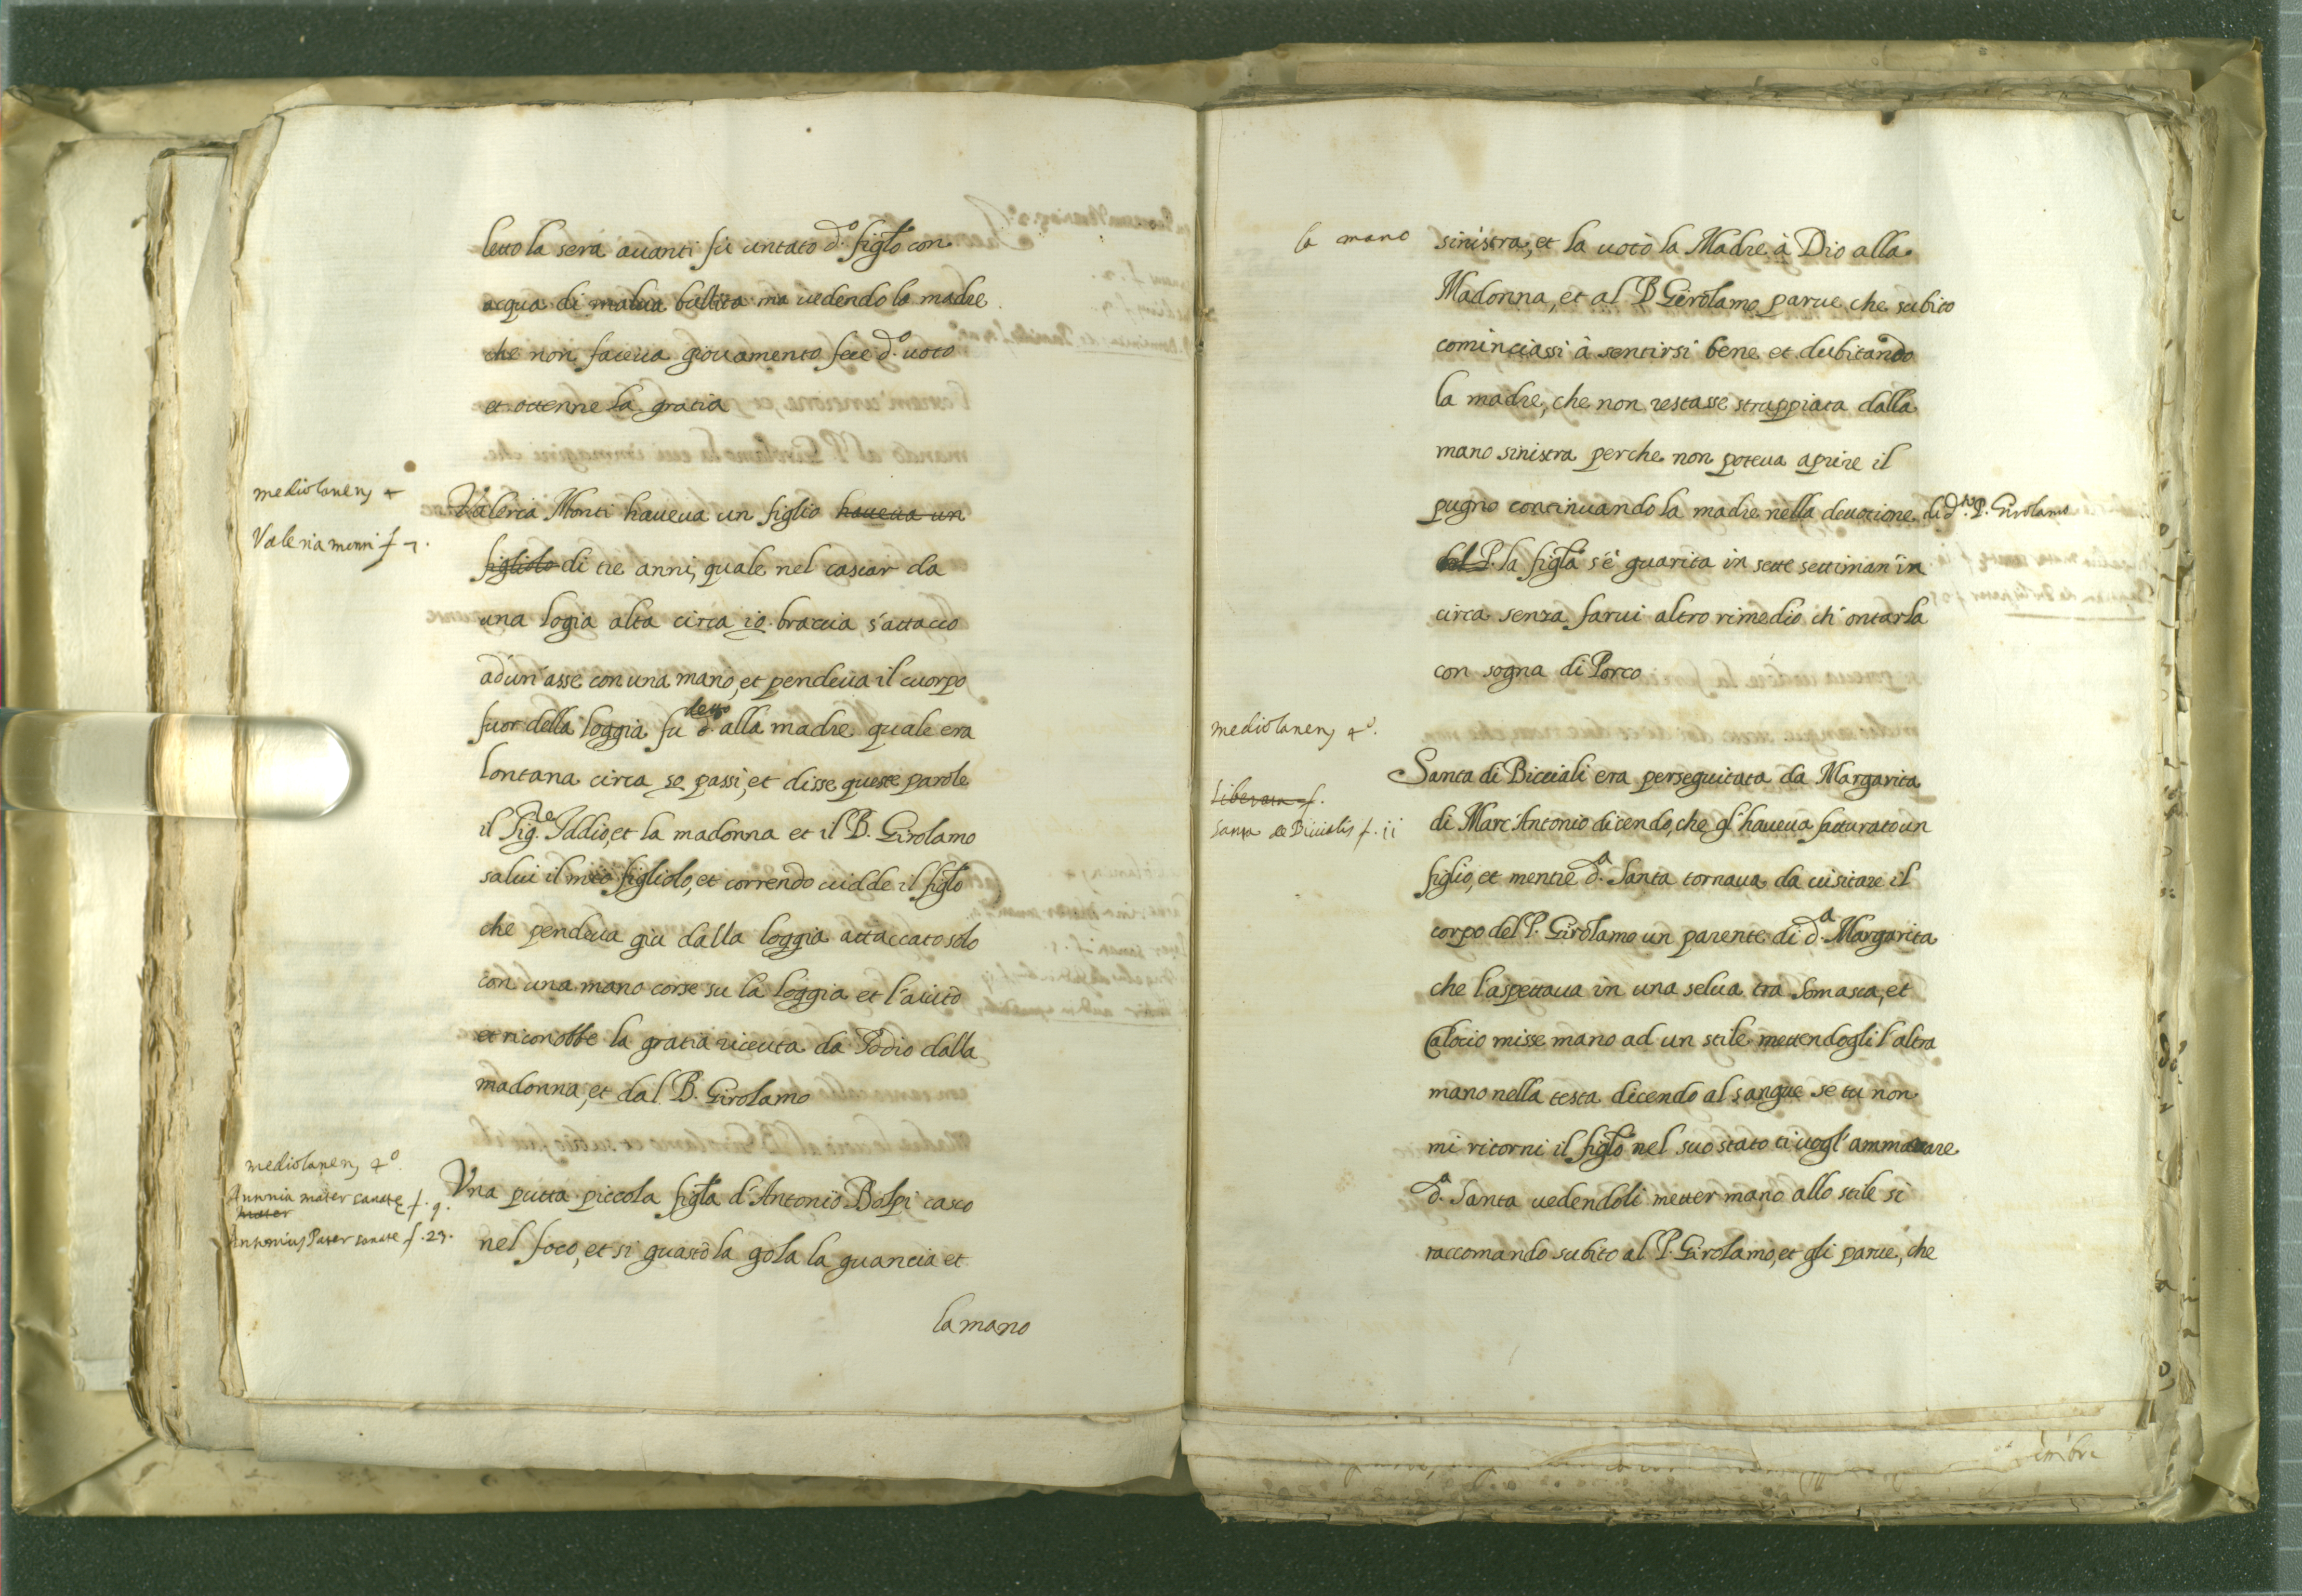 letto la sera auanti fù untato d.º figlo con
acqua di malua bullita ma uedendo la madre
che non faceua giouamento fece d.º uoto
et ottenne la gratia
mediolanen, 4
Valeria monti f 7.
Valeria Monti haueua un figlio haueua un
figliolo di tre anni, quale nel cascar da
una logia alta circa 10. braccia, s'attacco
ad un'asse con una mano, et pendeua il cuorpo
fuor della loggia fu detto d. alla madre quale era
lontana circa 50 passi, et disse queste parole
il Sig.re Iddio, et la madonna et il B. Girolamo
salui il mio figliolo, et correndo uidde il figlo
che pendeua giu dalla loggia attaccato solo
con una mano corse su la loggia et l'aiutò
et riconobbe la gratia riceuta da Iddio dalla
madonna, et dal B. Girolamo
mediolanen, 4º.
mater sanatę f. 9.
mater
Antonius Pater sanatę f. 23.
Vna putta piccola figla d'Antonio Bolpi casco
nel foco, et si guastò la gola la guancia et
la mano
la mano
sinistra, et la uotò la Madre à Dio alla
Madonna, et al B Girolamo parue che subito
cominciassi à sentirsi bene et dubitando
la madre, che non restasse strappiata dalla
mano sinistra perche non poteua aprire il
pugno continuando la madre nella deuotione di d.to P. Girolamo
del P. la figla s'è guarita in sette settiman' in
circa senza farui altro rimedio ch'ontarla
con sogna di Porco
mediolanen, 4º.
Liberata f.
Santa de Bicialis f. 11
Santa di Bicciali era perseguitata da Margarita
di Marc'Antonio dicendo, che gl'haueua fatturato un
figlio, et mentre d.a Santa tornaua da uisitare il
corpo del P. Girolamo un parente di d.a Margarita
che l'aspettaua in una selua tra Somasca, et
Calocio misse mano ad un stile mettendogli l'altra
mano nella testa dicendo al sangue se tu non
mi ritorni il figlo nel suo stato ti uogl'ammazzare
d.a Santa uedendoli metter mano allo stile si
raccomando subito al P. Girolamo, et gli parue, che